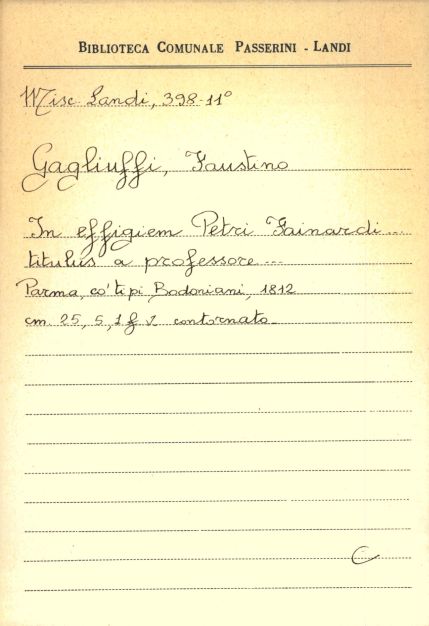 BIBLIOTECA COMUNALE PASSERINI - LANDI
Misc. Landi, 398-11°
Gagliuffi, Faustino
In effigiem Petri Fainardi...
titulus a professore...
Parma, co' tipi Bodoniani, 1812
cm. 25,5, 1 f contornato.
C